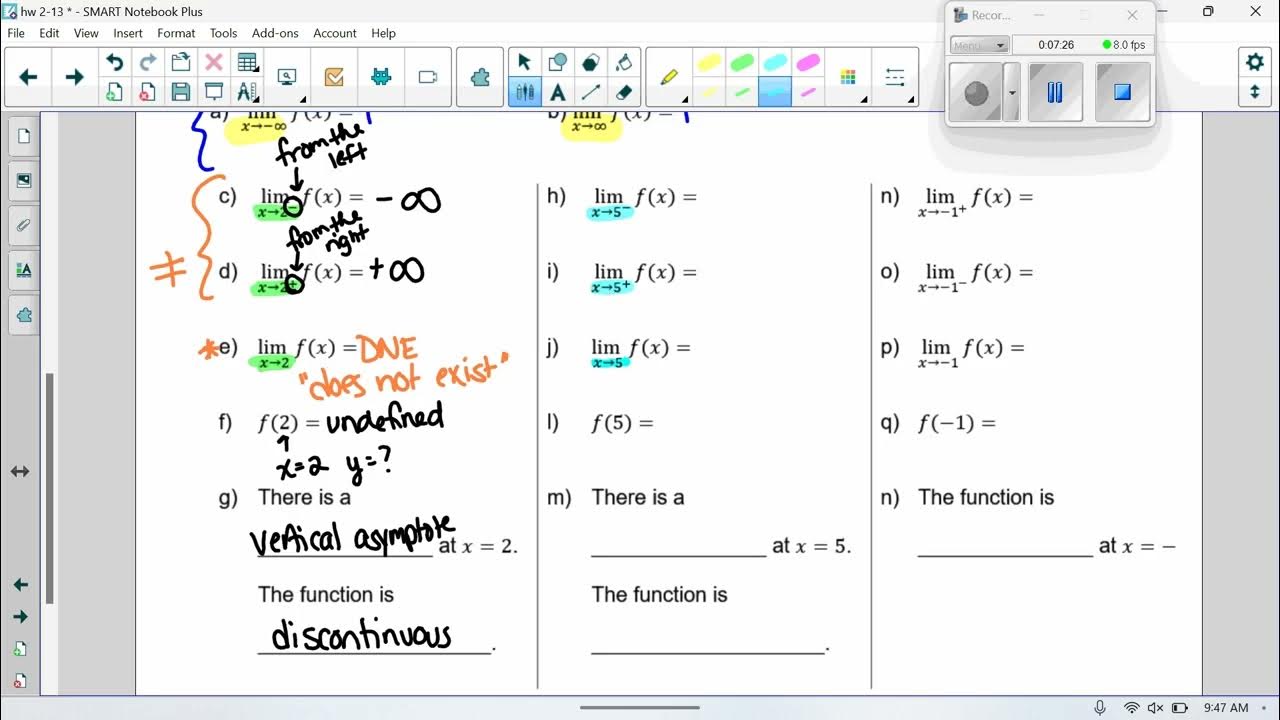 hw 2-13 * - SMART Notebook Plus
File Edit View Insert Format Tools Add-ons Account Help
Recor...
Menu
0:07:26 8.0 fps
a) lim f(x) =
x→−∞
b) lim f(x) =
x→∞
from the
left
c) lim f(x) = −∞
x→2⁻
from the
right
≠
d) lim f(x) = +∞
x→2⁺
*e) lim f(x) = DNE
x→2
"does not exist"
f) f(2) = undefined
↑
x=2 y=?
g) There is a
vertical asymptote at x = 2.
The function is
discontinuous.
h) lim f(x) =
x→5⁻
i) lim f(x) =
x→5⁺
j) lim f(x) =
x→5
l) f(5) =
m) There is a
at x = 5.
The function is
.
n) lim f(x) =
x→−1⁺
o) lim f(x) =
x→−1⁻
p) lim f(x) =
x→−1
q) f(−1) =
n) The function is
at x = −
9:47 AM